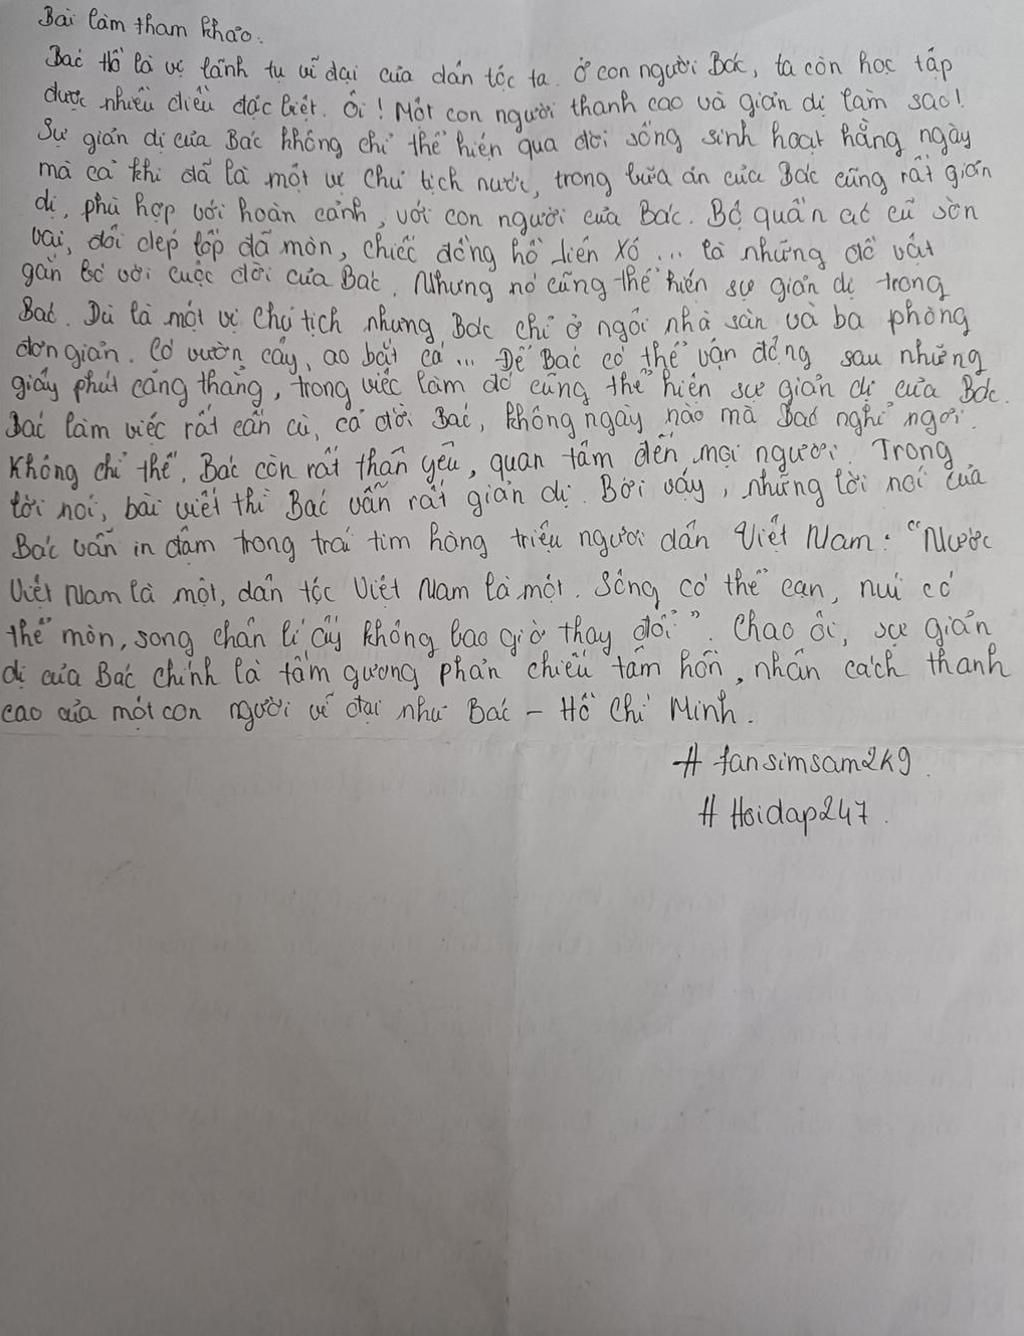 Bài làm tham khảo:
Bác Hồ là vị lãnh tụ vĩ đại của dân tộc ta. Ở con người Bác, ta còn học tập
được nhiều điều đặc biệt. Ôi! Một con người thanh cao và giản dị làm sao!
Sự giản dị của Bác không chỉ thể hiện qua đời sống sinh hoạt hằng ngày
mà cả khi đã là một vị Chủ tịch nước, trong bữa ăn của Bác cũng rất giản
dị, phù hợp với hoàn cảnh, với con người của Bác. Bộ quần áo cũ sờn
vai, đôi dép lốp đã mòn, chiếc đồng hồ Liên Xô ... là những đồ vật
gắn bó với cuộc đời của Bác. Nhưng nó cũng thể hiện sự giản dị trong
Bác. Dù là một vị Chủ tịch nhưng Bác chỉ ở ngôi nhà sàn và ba phòng
đơn giản. Có vườn cây, ao bắt cá ... Để Bác có thể vận động sau những
giây phút căng thẳng, trong việc làm đó cũng thể hiện sự giản dị của Bác.
Bác làm việc rất cần cù, cả đời Bác, không ngày nào mà Bác nghỉ ngơi.
Không chỉ thế, Bác còn rất thân yêu, quan tâm đến mọi người. Trong
lời nói, bài viết thì Bác vẫn rất giản dị. Bởi vậy, những lời nói của
Bác vẫn in đậm trong trái tim hàng triệu người dân Việt Nam: "Nước
Việt Nam là một, dân tộc Việt Nam là một. Sông có thể cạn, núi có
thể mòn, song chân lí ấy không bao giờ thay đổi". Chao ôi, sự giản
dị của Bác chính là tấm gương phản chiếu tâm hồn, nhân cách thanh
cao của một con người vĩ đại như Bác - Hồ Chí Minh.
# fansimsam2k9.
# Hoidap247.